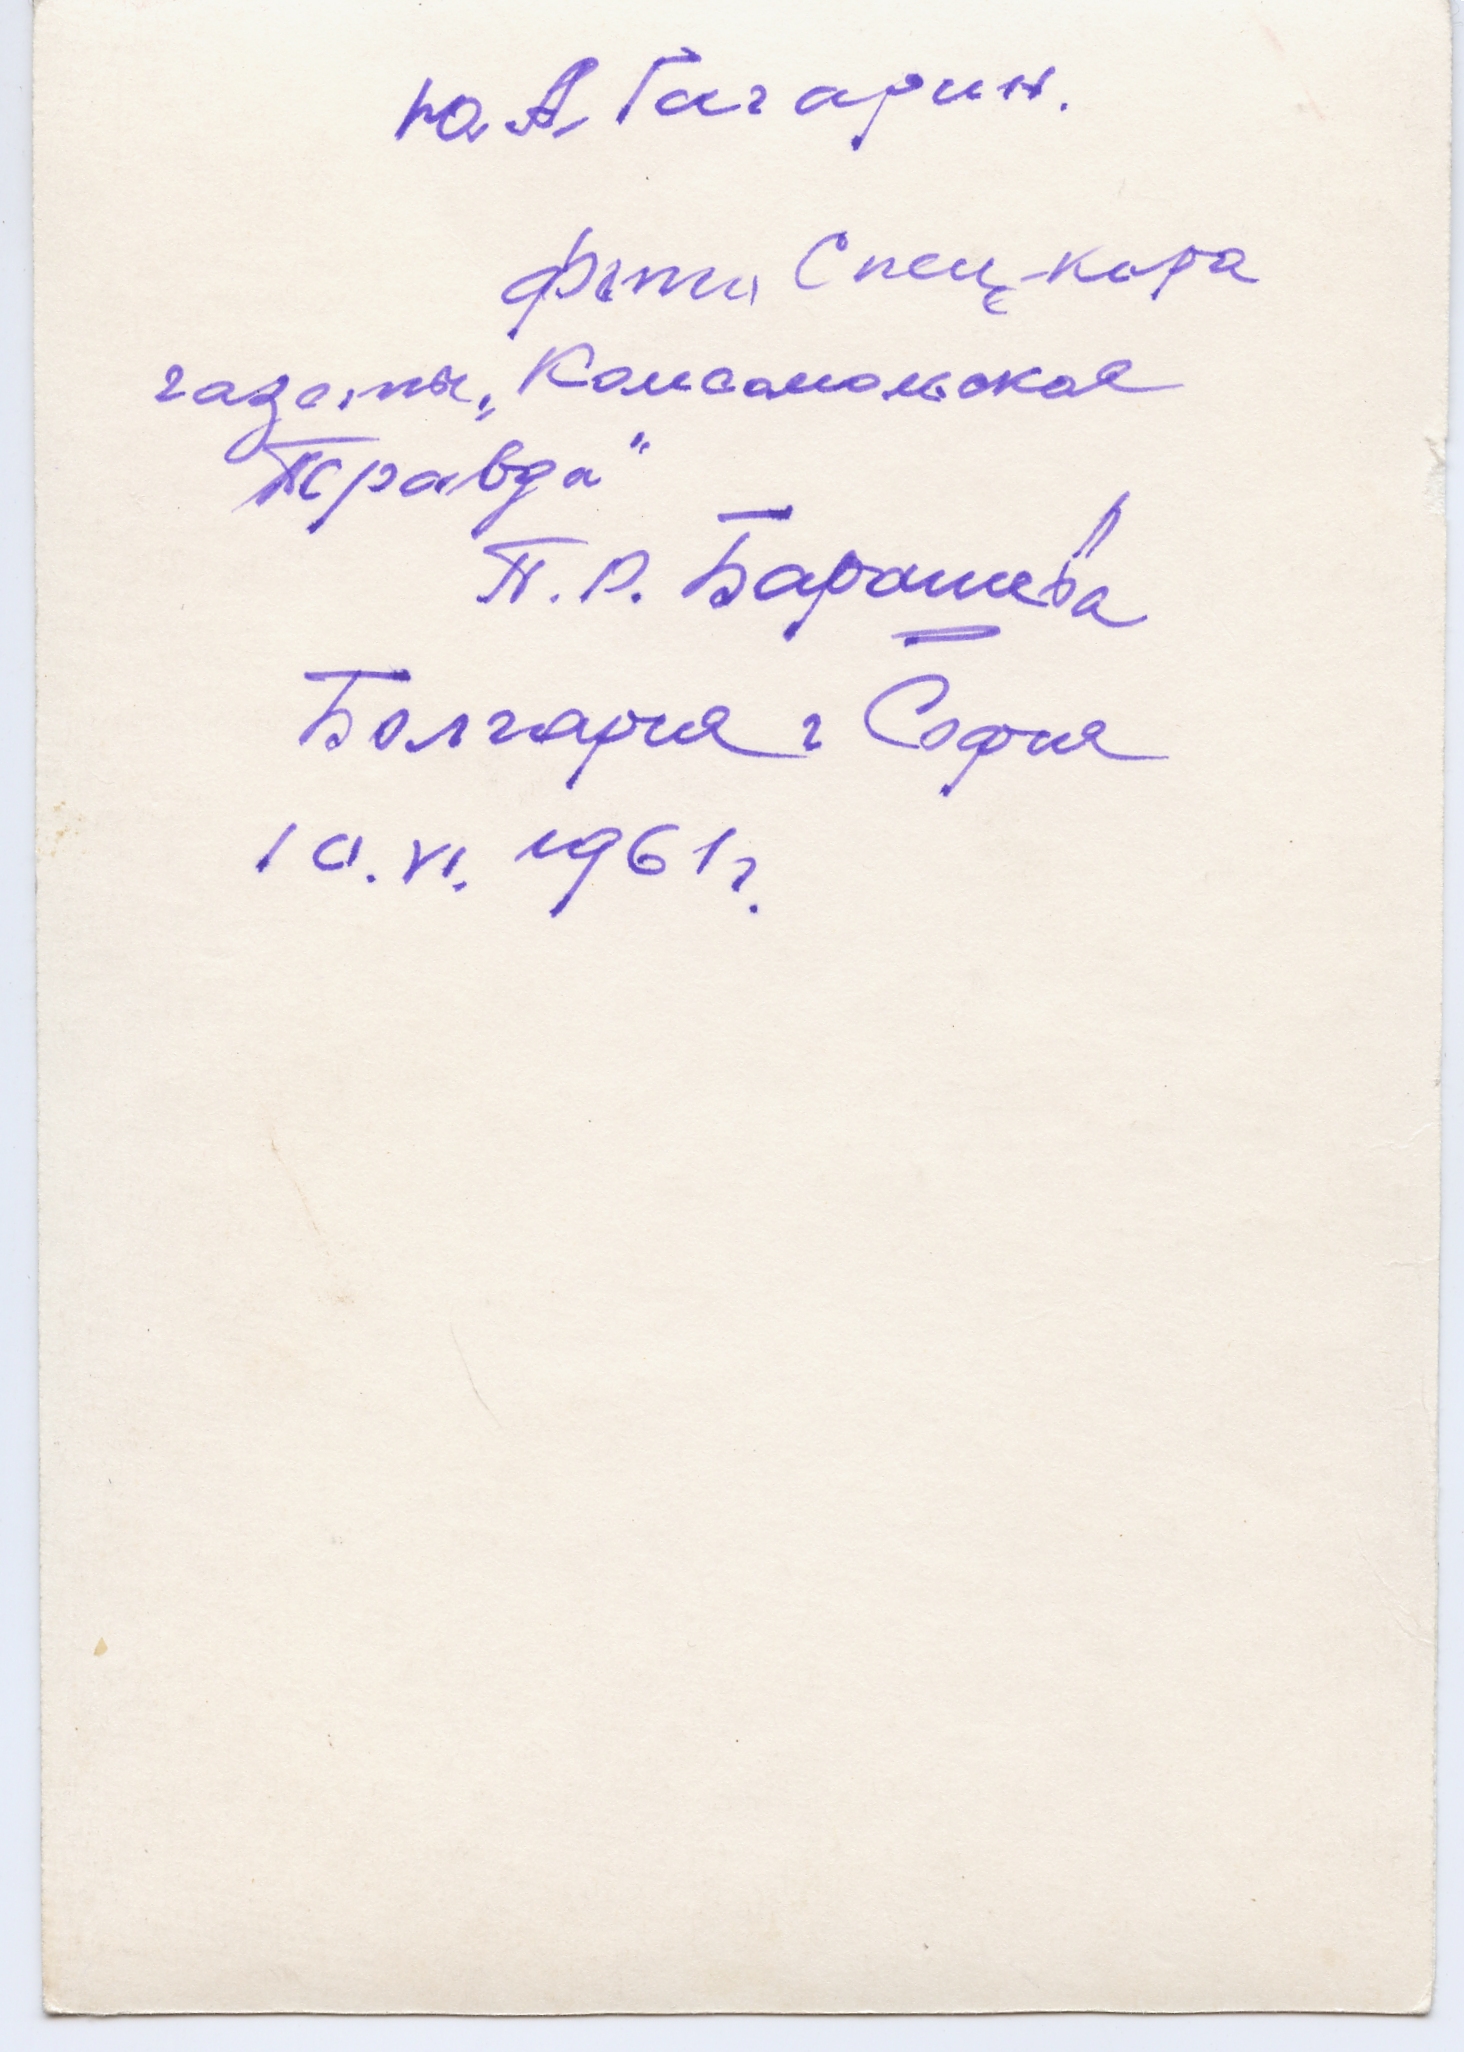 Ю. А. Гагарин.
Фото Спец-кора
газеты „Комсомольская
Правда“
П. Р. Барашева
Болгария г София
10.VI. 1961 г.